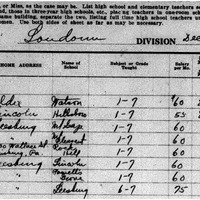 or Miss, as the case may be. List high school and elementary teachers se
and, those in three-year high schools, etc., placing teachers in one-room se
same building, separate the two, listing full time high school teachers
Use both sides of sheet as far as may be necessary.
Loudoun DIVISION
HOME ADDRESS Name of School Subject or Grade Taught Salary per Mo.
Aldie Watson 1-7 60
Lincoln Hillsboro 1-7 55
Leesburg 1-7 60
" Pleasant 1-7 60
Wallace St. Rock Hill 1-7 60
Leesburg Lincoln 1-7 60
" Grove 1-7 60
" Leesburg 6-7 75